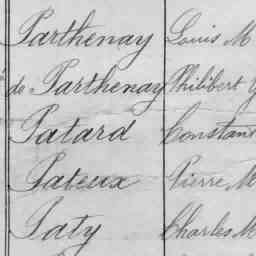 Parthenay Louis M
de Parthenay Philibert
Patard Constant
Pateux Pierre M
Paty Charles M